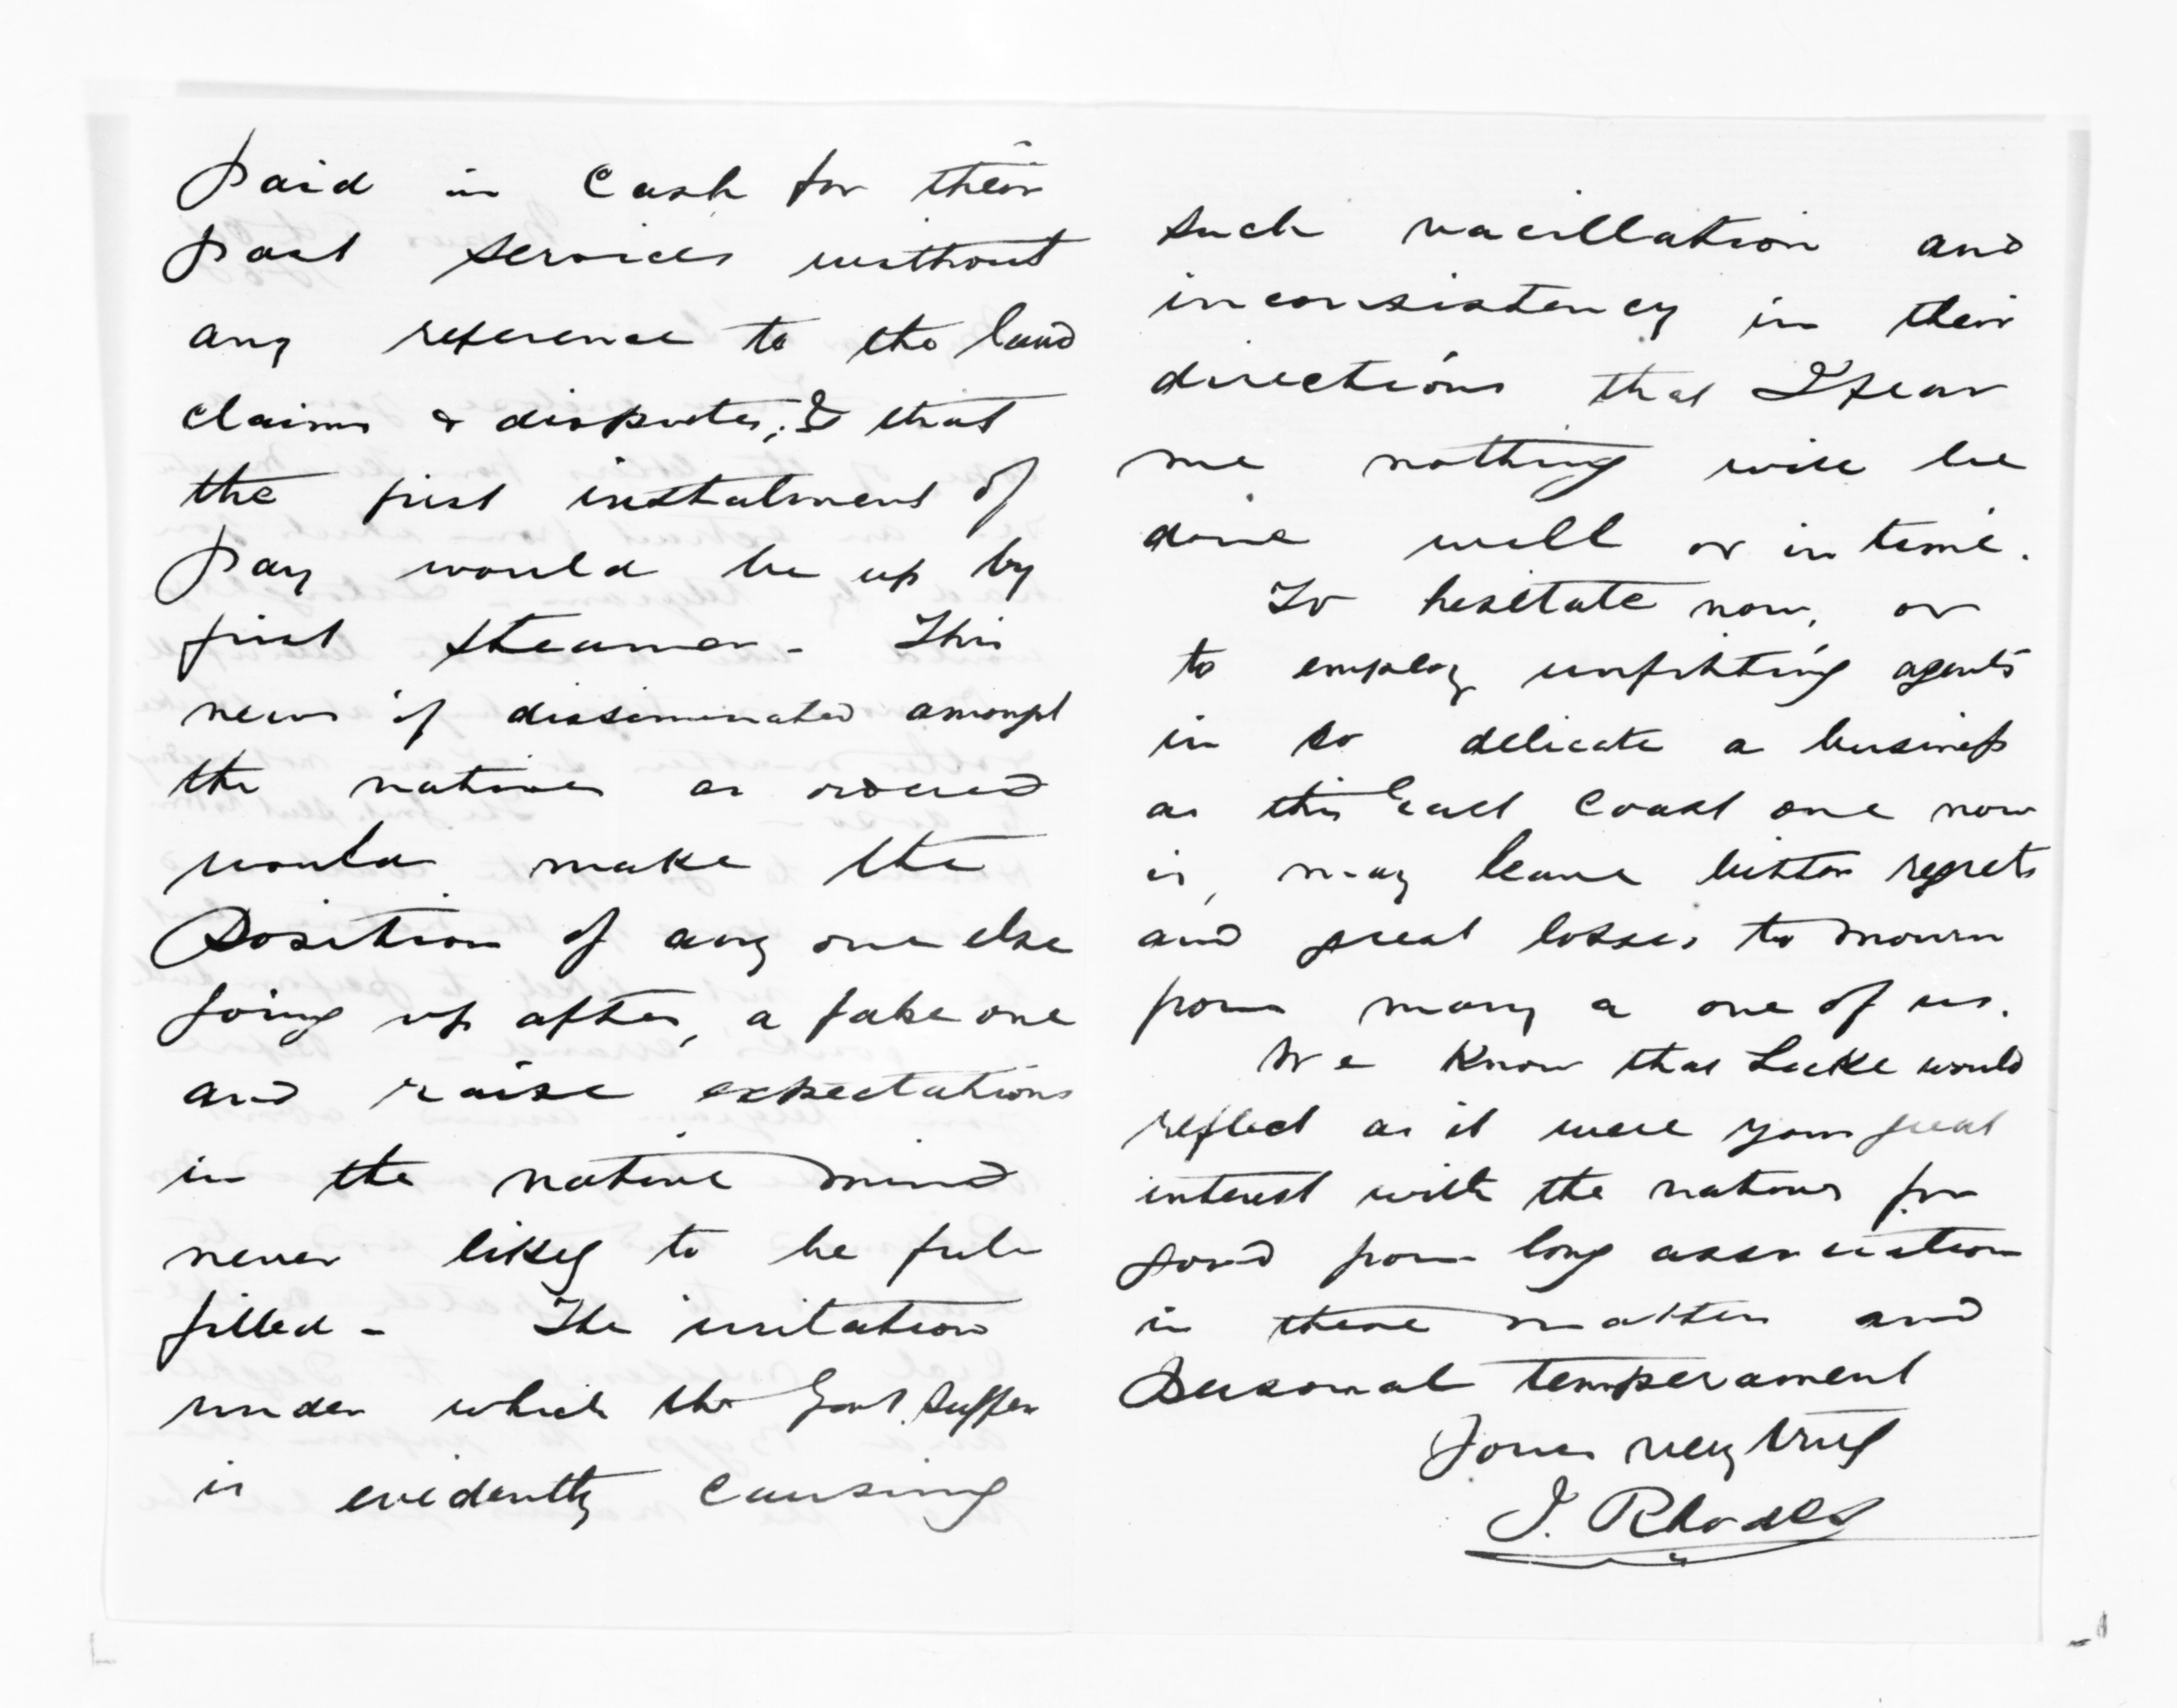 paid in Cash for their
past services without
any reference to the land
claims & disputes; & that
the first instalment of
pay would be up by
first steamer - This
news if disseminated amongst
the natives as ordered
would make the
Position of any one else
going up after, a false one
and raise expectations
in the native mind
never likely to be ful
filled - The irritation
under which the Govt. suffer
is evidently causing
such vacillation and
inconsistency in their
directions that I fear
me nothing will be
done well or in time.
To hesitate now, or
to employ unfitting agents
in so delicate a business
as this East Coast one now
is, may leave bitter regrets
and great losses to mourn
from many a one of us.
We know that Locke would
reflect as it were your great
interest with the natives for
good from long association
in these matters and
Personal temperament
Yours very truly
J. Rhodes